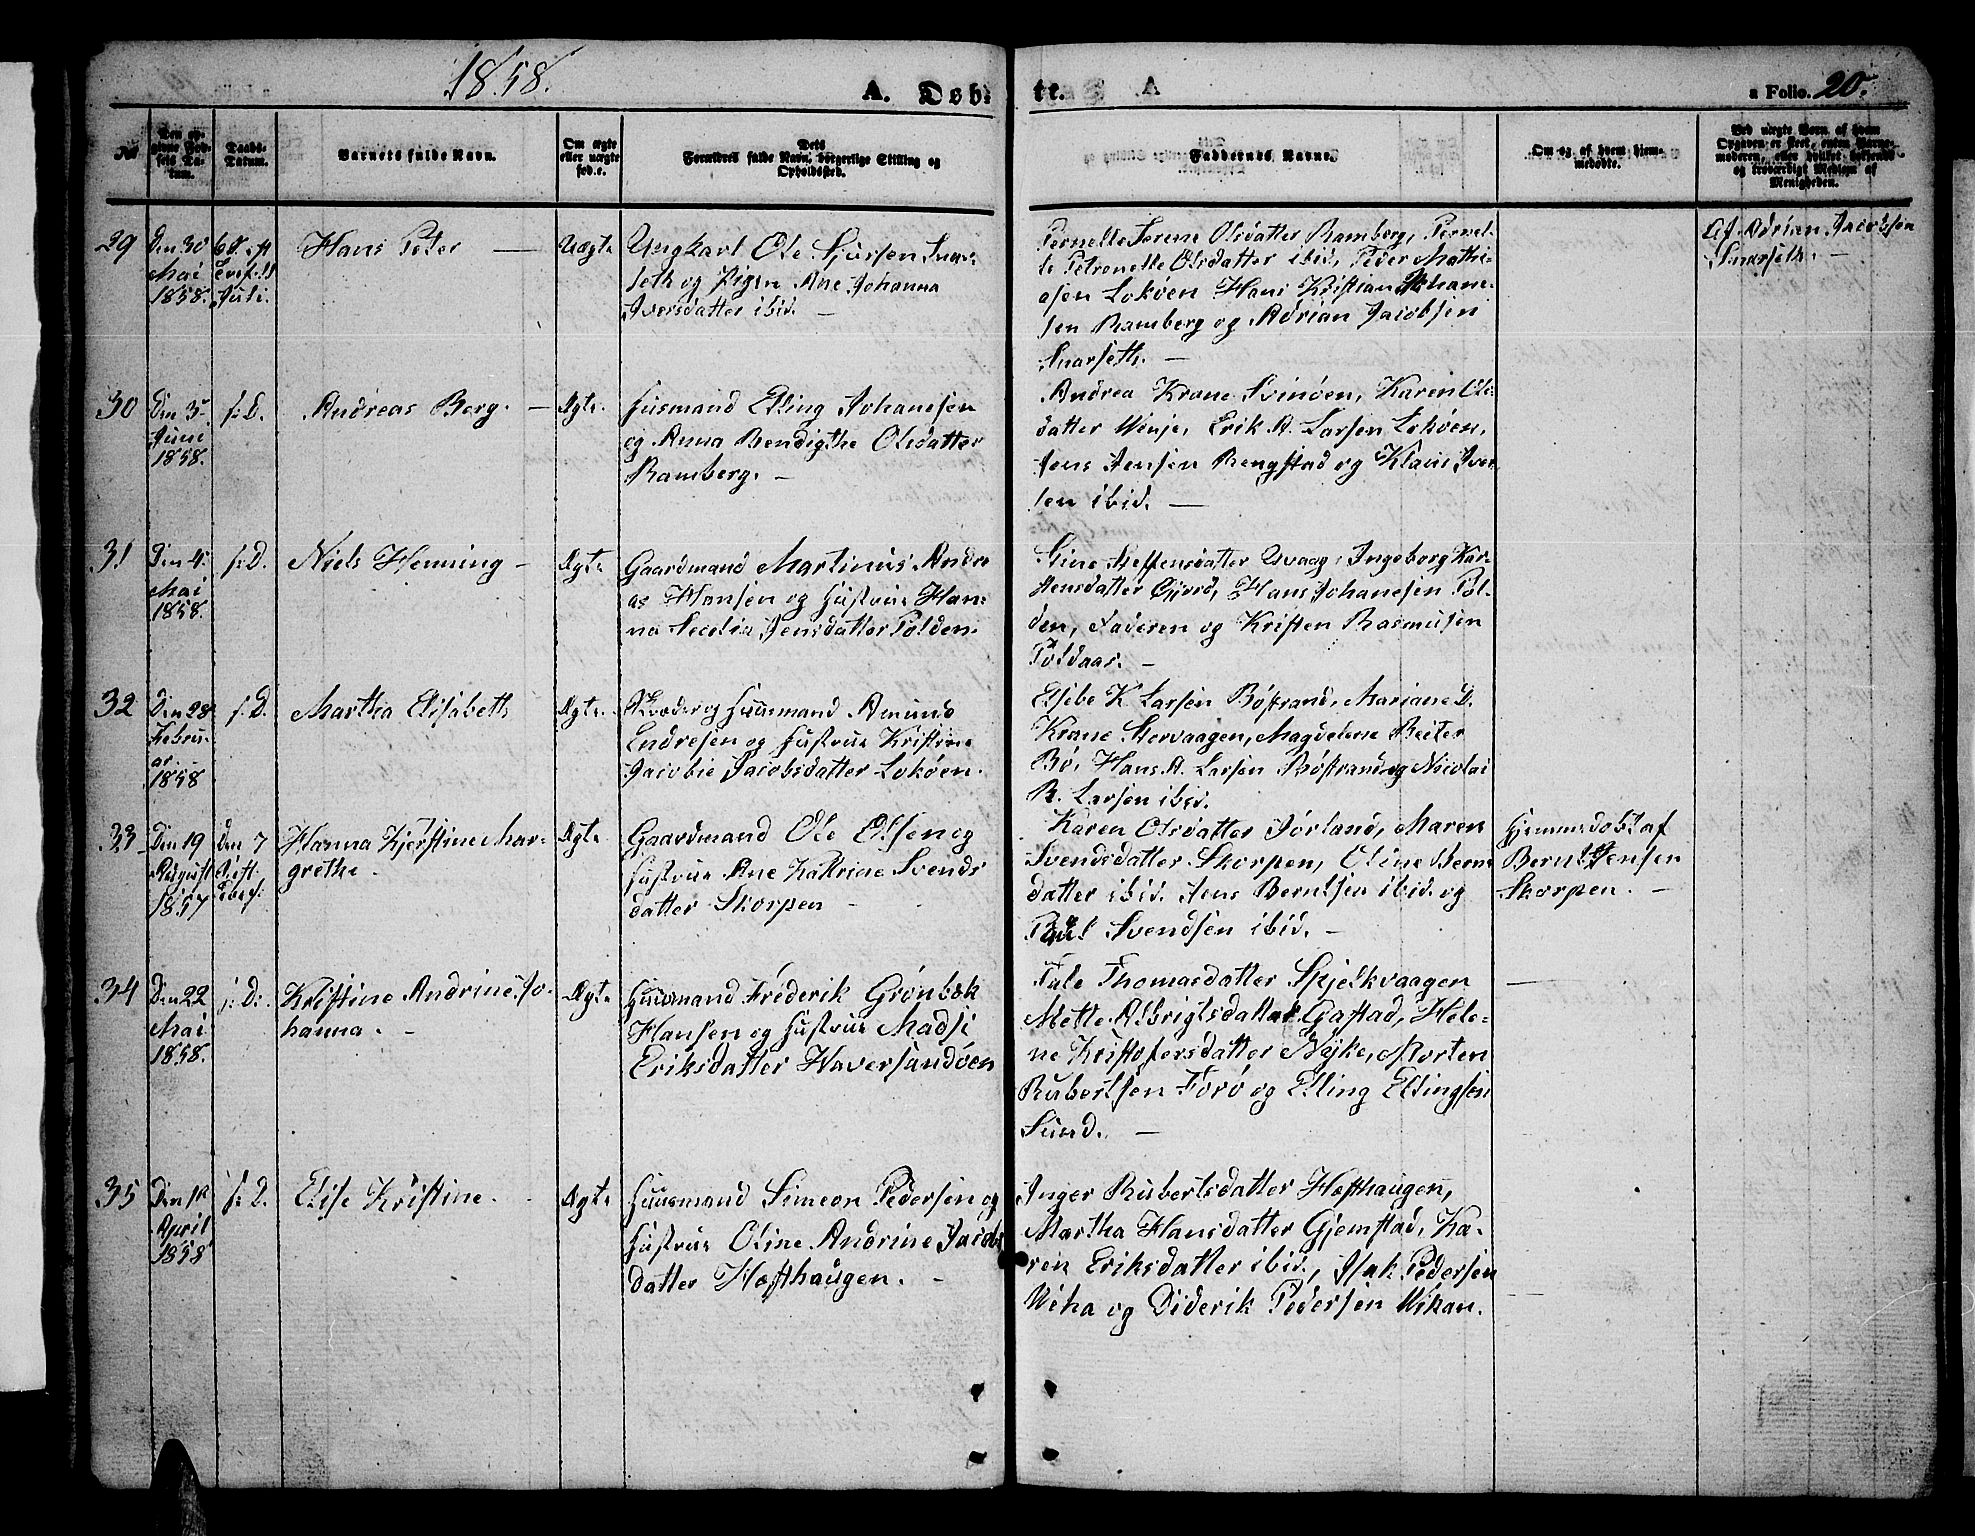 1858.
A. Døb- te. A
a Folio. 20.
No
Den op-
givne Fød-
sels Da-
tum.
Daabs-
Datum.
Barnets fulde Navn.
Om ægte
eller uægte
fød.e.
Dets
Forældres fulde Navn, borgerlige Stilling og
Opholdssted.
Faddernes Navne.
Om og af hvem hjem-
medøbte.
Ved uægte Børn af hvem
Opgaven er skeet, enten Barne-
moderen, eller hvilket bekjendt
og troværdigt Medlem af
Menigheden.
29
Den 30
Mai
1858.
6 S. eft
Trefold
Juli.
Hans Peter —
Uægte
Ungkarl Ole Sjursen Snar-
seth og Pigen Ane Johanna
Iversdatter ibid. —
Pernelle Serene Olsdatter Ramberg, Pernel-
le Petronelle Olsdatter ibid, Peder Mathi-
asen Lokøen Hans Kristian Johane-
sen Ramberg og Adrian Jacobsen
Snarseth. —
Af Adrian Jacobsen
Snarseth. —
30
Den 3
Juni
1858.
s: D.
Andreas Berg. —
Ægte.
Husmand Elling Johanesen
og Anna Bendigthe Olsdatter
Ramberg. —
Andrea Krane Svinøen, Karen Ols-
datter Uvnje, Erik A. Larsen Lokøen,
Jens Jensen Rengstad og Klaus Iver-
sen ibid. —
31
Den 4
Mai
1858.
s: D.
Niels Henning —
Ægte
Gaardmand Martinus Andre-
as Hansen og Hustrue Han-
na Secelia Jensdatter Polden.
Stine Steffensdatter Uvaag, Ingeborg Kar-
stensdatter Gjørø, Hans Johanesen Pol-
den, Faderen og Kristen Rasmusen
Poldaas. —
32
Den 28
Febru-
ar.
1858
s. D.
Martha Elisabeth
Ægte.
Skræder og Huusmand Amund
Endresen og Hustrue Kristine
Jacobie Jacobsdatter Lokøen.
Elsebe K Larsen Bøstrand, Mariane D.
Krane Storvaagen, Magdelene Reiter
Bø, Hans A. Larsen Bøstrand og Nicolai
R. Larsen ibid.
33
Den 19
August
1857
Den 7
S. eft
Hanna Kjerstine Mar-
grethe.
Ægte
Gaardmand Ole Olsen og
Hustrue Ane Katrine Svends
datter Skorpen —
Karen Olsdatter Jørland, Maren
Svendsdatter Skorpen, Oline Bernt
datter ibid. Jens Berntsen ibid. og
Paul Svendsen ibid. —
Hjemmedøbt af
Bernt Jensen
Skorpen. —
34
Den 22
Mai
1858.
s: D:.
Kristine Andrine Jo-
hanna. —
Ægte
Huusmand Frederik Grønbæk
Hansen og Hustrue Madsi
Eriksdatter Haversandøen
Tale Thomasdatter Skjelkvaagen
Mette Albrigtsdatter Gastad, Hele-
ne Kristofersdatter Nyke, Morten
Rubertsen Forø og Elling Ellingsen
Sund. —
—
35
April
1858
s: D.
Elise Kristine.
Ægte
Huusmand Simeon Pedersen og
Hustrue Oline Andrine Jacobs
datter Hæfthaugen. —
Inger Rubertsdatter Hæfthaugen,
Martha Hansdatter Gjemstad, Ka-
ren Eriksdatter ibid., Isak Pedersen
Uiha og Diderik Pedersen Uikan.
—